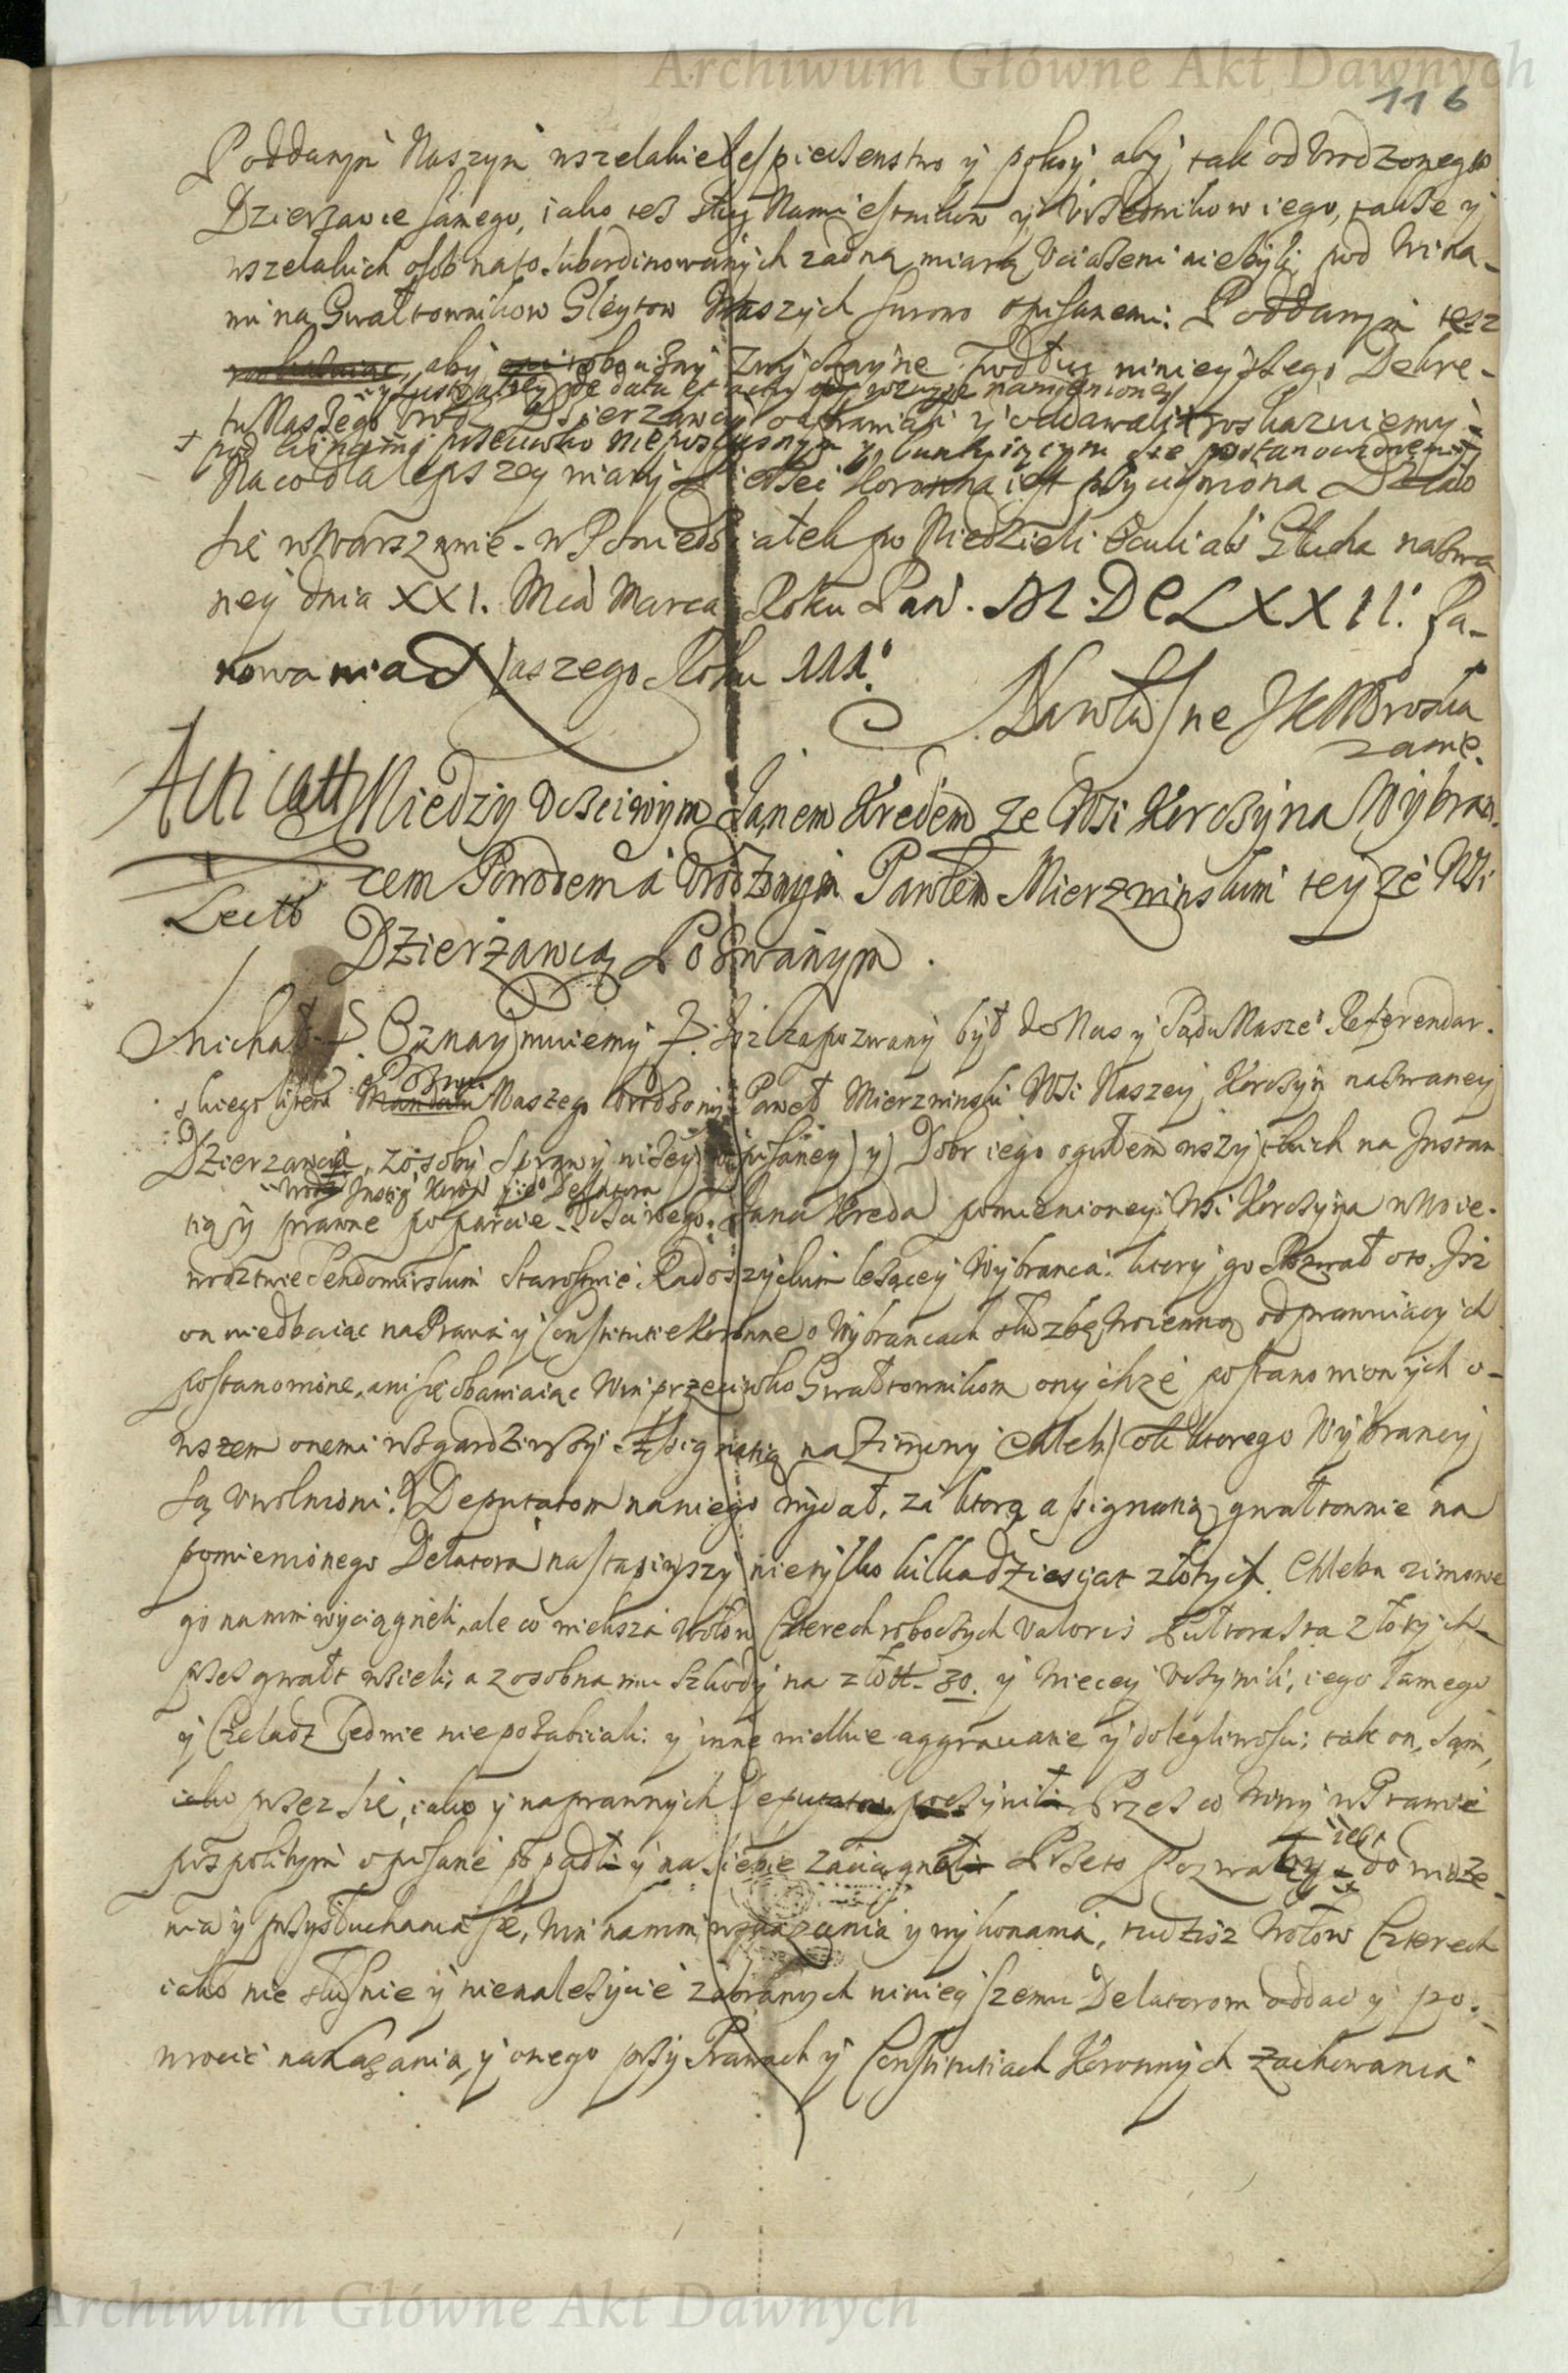 Archiwum Główne Akt Dawnych
116
Poddanym Naszym wszelakie bespieczenstwo y pokoy, aby tak od Vrodzonego
Dzierzawce samego, iako tesz sług Namiestnikow y Vrzędnikow iego, takze y
wszelakich osob na to subordinowanych zadną miarą vciążeni niebyli, pod wina-
mi na Gwałtownikow Gleytow Naszych surowo opisanemi. Poddanym tesz
aby robocizny zwyczayne podług ninieyszego Dekre-
y Lustratiey de data et actu wzwysz namienioney
tu Naszego Vrod. Dzierzawcy odprawiali y oddawali + roskazuiemy
+ pod winami przeciwko nieposłusznym y buntuiącym się postanowionemi
Na co dla lepszey wiary Pieczęc Koronna iest przycisniona Działo
się w Warszawie w Poniedziałek po Niedzieli Oculi abo Głucha nazwa
ney dnia XXI. Mca Marca Roku Pan. M.DCLXXII. Pa-
nowania Naszego Roku III.
Na własne JKMośći
zanie.
Miedzy Vczciwym Janem Kredem ze Wsi Korczyna Wybran-
cem Powodem a Vrodzonym Pawłem Mierzwinskim teyze Wsi
Lect
Dzierzawcą Pozwanym.
Michał. Oznaymuiemy. Isz zapozwany był do Nas y Sądu Nasze Referendar-
skiego Pozwem Naszego Vrodzony Paweł Mierzwinski Wsi Naszey Korczyn nazwaney
Dzierzawca, z osoby sprawy niżey opisaney y Dobr iego ogułem wszytkich na Instan-
Instig. Koron. y iego Delatora
tią y prawne poparcie Vczciwego Jana Kreda pomienioney Wsi Korczyna w Woie-
wodztwie Sendomirskim Starostwie Radoszyckim leżącey Wybranca. ktory go Pozwał oto. Isz
on niedbaiąc na Prawa y Constitutie Koronne o Wybrancach służbę woienną odprawuiących
postanowione, ani się obawiaiąc Win przeciwko Gwałtownikom onychże postanowionych o-
wszem onemi wzgardziwszy Assignatią na Zimowy Chleb od ktorego Wybrancy
są vwolnieni. Deputatom na niego wydał, za ktorą assignatią gwałtownie na
pomienionego Delatora nastąpiwszy nietylko kilkadziesiąt złotych Chleba zimowe
go na nim wyciągneli, ale co większa Wołow Czterech roboczych valoris Pułtorasta złotych
przez gwałt wzieli, a z osobna mu szkody na złott. 30. y wiecey vczynili, iego samego
y Czeladz ledwie niepozabiiali: y inne wielkie aggrawatie y dolegliwosci; tak on sam,
przez się, iako y naprawnych Deputatow poczynił Przez co Winy w Prawie
pospolitym opisane popadł y na siebie zaciągnął Przeto Pozwany iest do widze-
nia y przysłuchania się, Win na nim wskazania y wykonania, tudzisz Wołow Czterech
iako nie słusznie y nienależycie zabranych ninieyszemu Delatorom oddac y po-
wrocić nakazania, y onego przy Prawach y Constitutiach Koronnych zachowania
Archiwum Główne Akt Dawnych